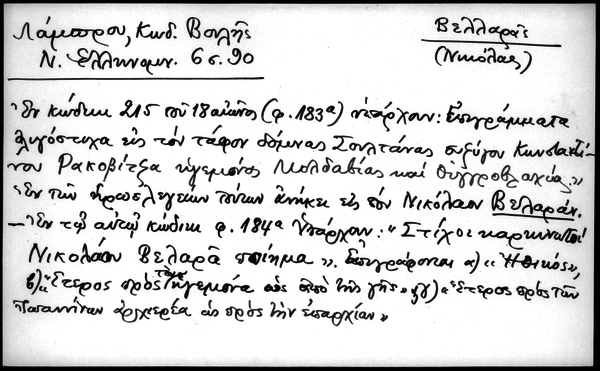 Λάμπρου, Κωδ. Βουλῆς
Ν. Ἑλληνομν. 6 σ. 90
Βελλαρᾶς
(Νικόλαος)
Ἐν κώδικι 215 τοῦ 18 αἰῶνος (φ. 183α) ὑπάρχουν: Ἐπιγράμματα
λιγόστιχα εἰς τὸν τάφον δόμνας Σουλτάνας συζύγου Κωνσταντί-
νου Ρακοβίτζα ἡγεμόνος Μολδαβίας καὶ Οὐγγροβλαχίας."
Ἐν τῶν ἡρωελεγείων τούτων ἀνήκει εἰς τὸν Νικόλαον Βελαρᾶν.
— Ἐν τῷ αὐτῷ κώδικι φ. 184α ὑπάρχουν: "Στίχοι καρκινικοί
Νικολάου Βελαρᾶ ποίημα". Ἐπιγράφονται α) «Ἠθικός»,
β) «Ἕτερος πρὸς τὸν ἡγεμόνα ὡς ἀπὸ τῆς γῆς» γ) «Ἕτερος πρὸς τὸν
Ἰωαννίνων ἀρχιερέα ὡς πρὸς τὴν ἐπαρχίαν»